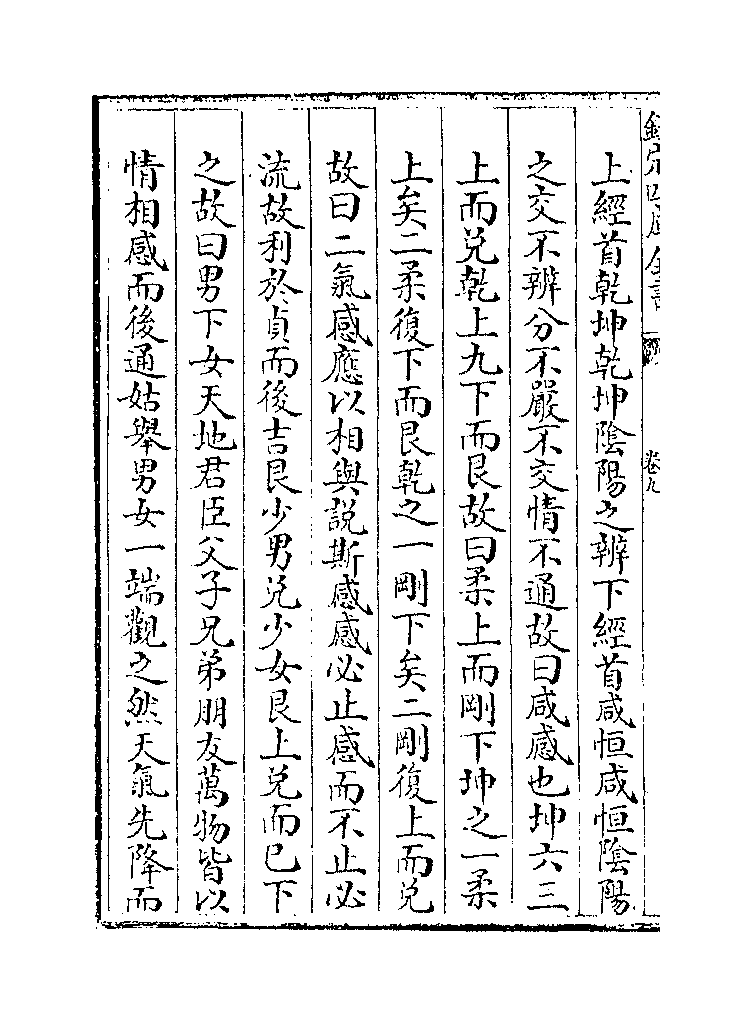 欽定四庫全書 卷九
上經首乾坤乾坤陰陽之辨下經首咸恒咸恒陰陽
之交不辨分不嚴不交情不通故曰咸感也坤六三
上而兌乾上九下而艮故曰柔上而剛下坤之一柔
上矣二柔復下而艮乾之一剛下矣二剛復上而兌
故曰二氣感應以相與說斯感感必止感而不止必
流故利於貞而後吉艮少男兌少女艮上兌而已下
之故曰男下女天地君臣父子兄弟朋友萬物皆以
情相感而後通姑舉男女一端觀之然天氣先降而